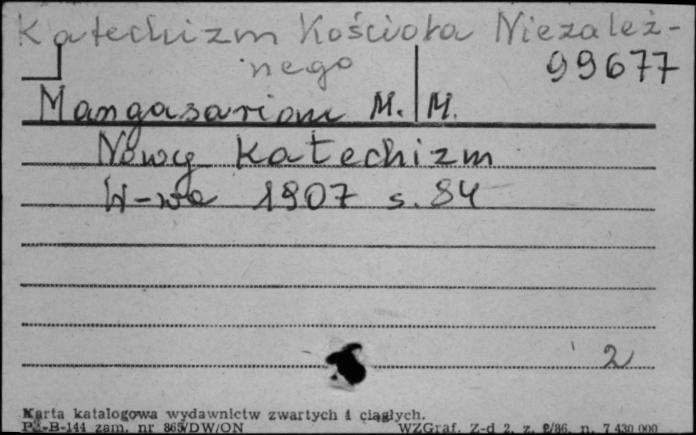 Katechizm Kościoła Niezależ-
nego
99677
Mangasarian M. M.
Nowy Katechizm
W-wa 1907 s. 84
2
Karta katalogowa wydawnictw zwartych i ciągłych.
Pu-B-144 zam. nr 865/DW/ON WZGraf. Z-d 2, z. 2/86, n. 7 430 000